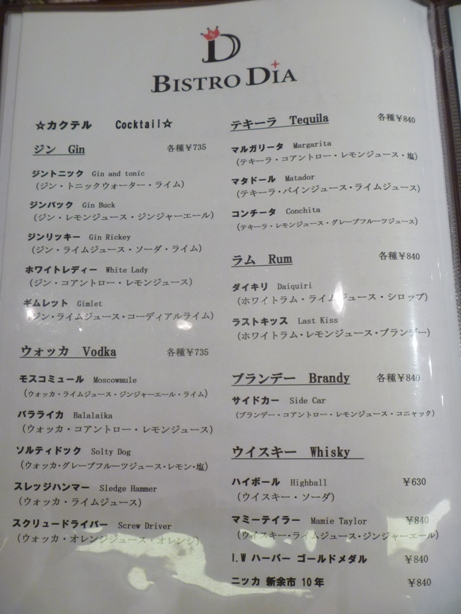 D
BISTRO DIA
☆カクテル Cocktail☆
ジン Gin 各種￥735
ジントニック Gin and tonic
(ジン・トニックウォーター・ライム)
ジンバック Gin Buck
(ジン・レモンジュース・ジンジャーエール)
ジンリッキー Gin Rickey
(ジン・ライムジュース・ソーダ・ライム)
ホワイトレディー White Lady
(ジン・コアントロー・レモンジュース)
ギムレット Gimlet
(ジン・ライムジュース・コーディアルライム)
ウォッカ Vodka 各種￥735
モスコミュール Moscowmule
(ウォッカ・ライムジュース・ジンジャーエール・ライム)
バラライカ Balalaika
(ウォッカ・コアントロー・レモンジュース)
ソルティドック Solty Dog
(ウォッカ・グレープフルーツジュース・レモン・塩)
スレッジハンマー Sledge Hammer
(ウォッカ・ライムジュース)
スクリュードライバー Screw Driver
(ウォッカ・オレンジジュース・オレンジ)
テキーラ Tequila 各種￥840
マルガリータ Margarita
(テキーラ・コアントロー・レモンジュース・塩)
マタドール Matador
(テキーラ・パインジュース・ライムジュース)
コンチータ Conchita
(テキーラ・レモンジュース・グレープフルーツジュース)
ラム Rum 各種￥840
ダイキリ Daiquiri
(ホワイトラム・ライムジュース・シロップ)
ラストキッス Last Kiss
(ホワイトラム・レモンジュース・ブランデー)
ブランデー Brandy 各種￥840
サイドカー Side Car
(ブランデー・コアントロー・レモンジュース・コニャック)
ウイスキー Whisky
ハイボール Highball ￥630
(ウイスキー・ソーダ)
マミーテイラー Mamie Taylor ￥840
(ウイスキー・ライムジュース・ジンジャーエール)
I.W ハーパー ゴールドメダル ￥840
ニッカ 新余市 10年 ￥840